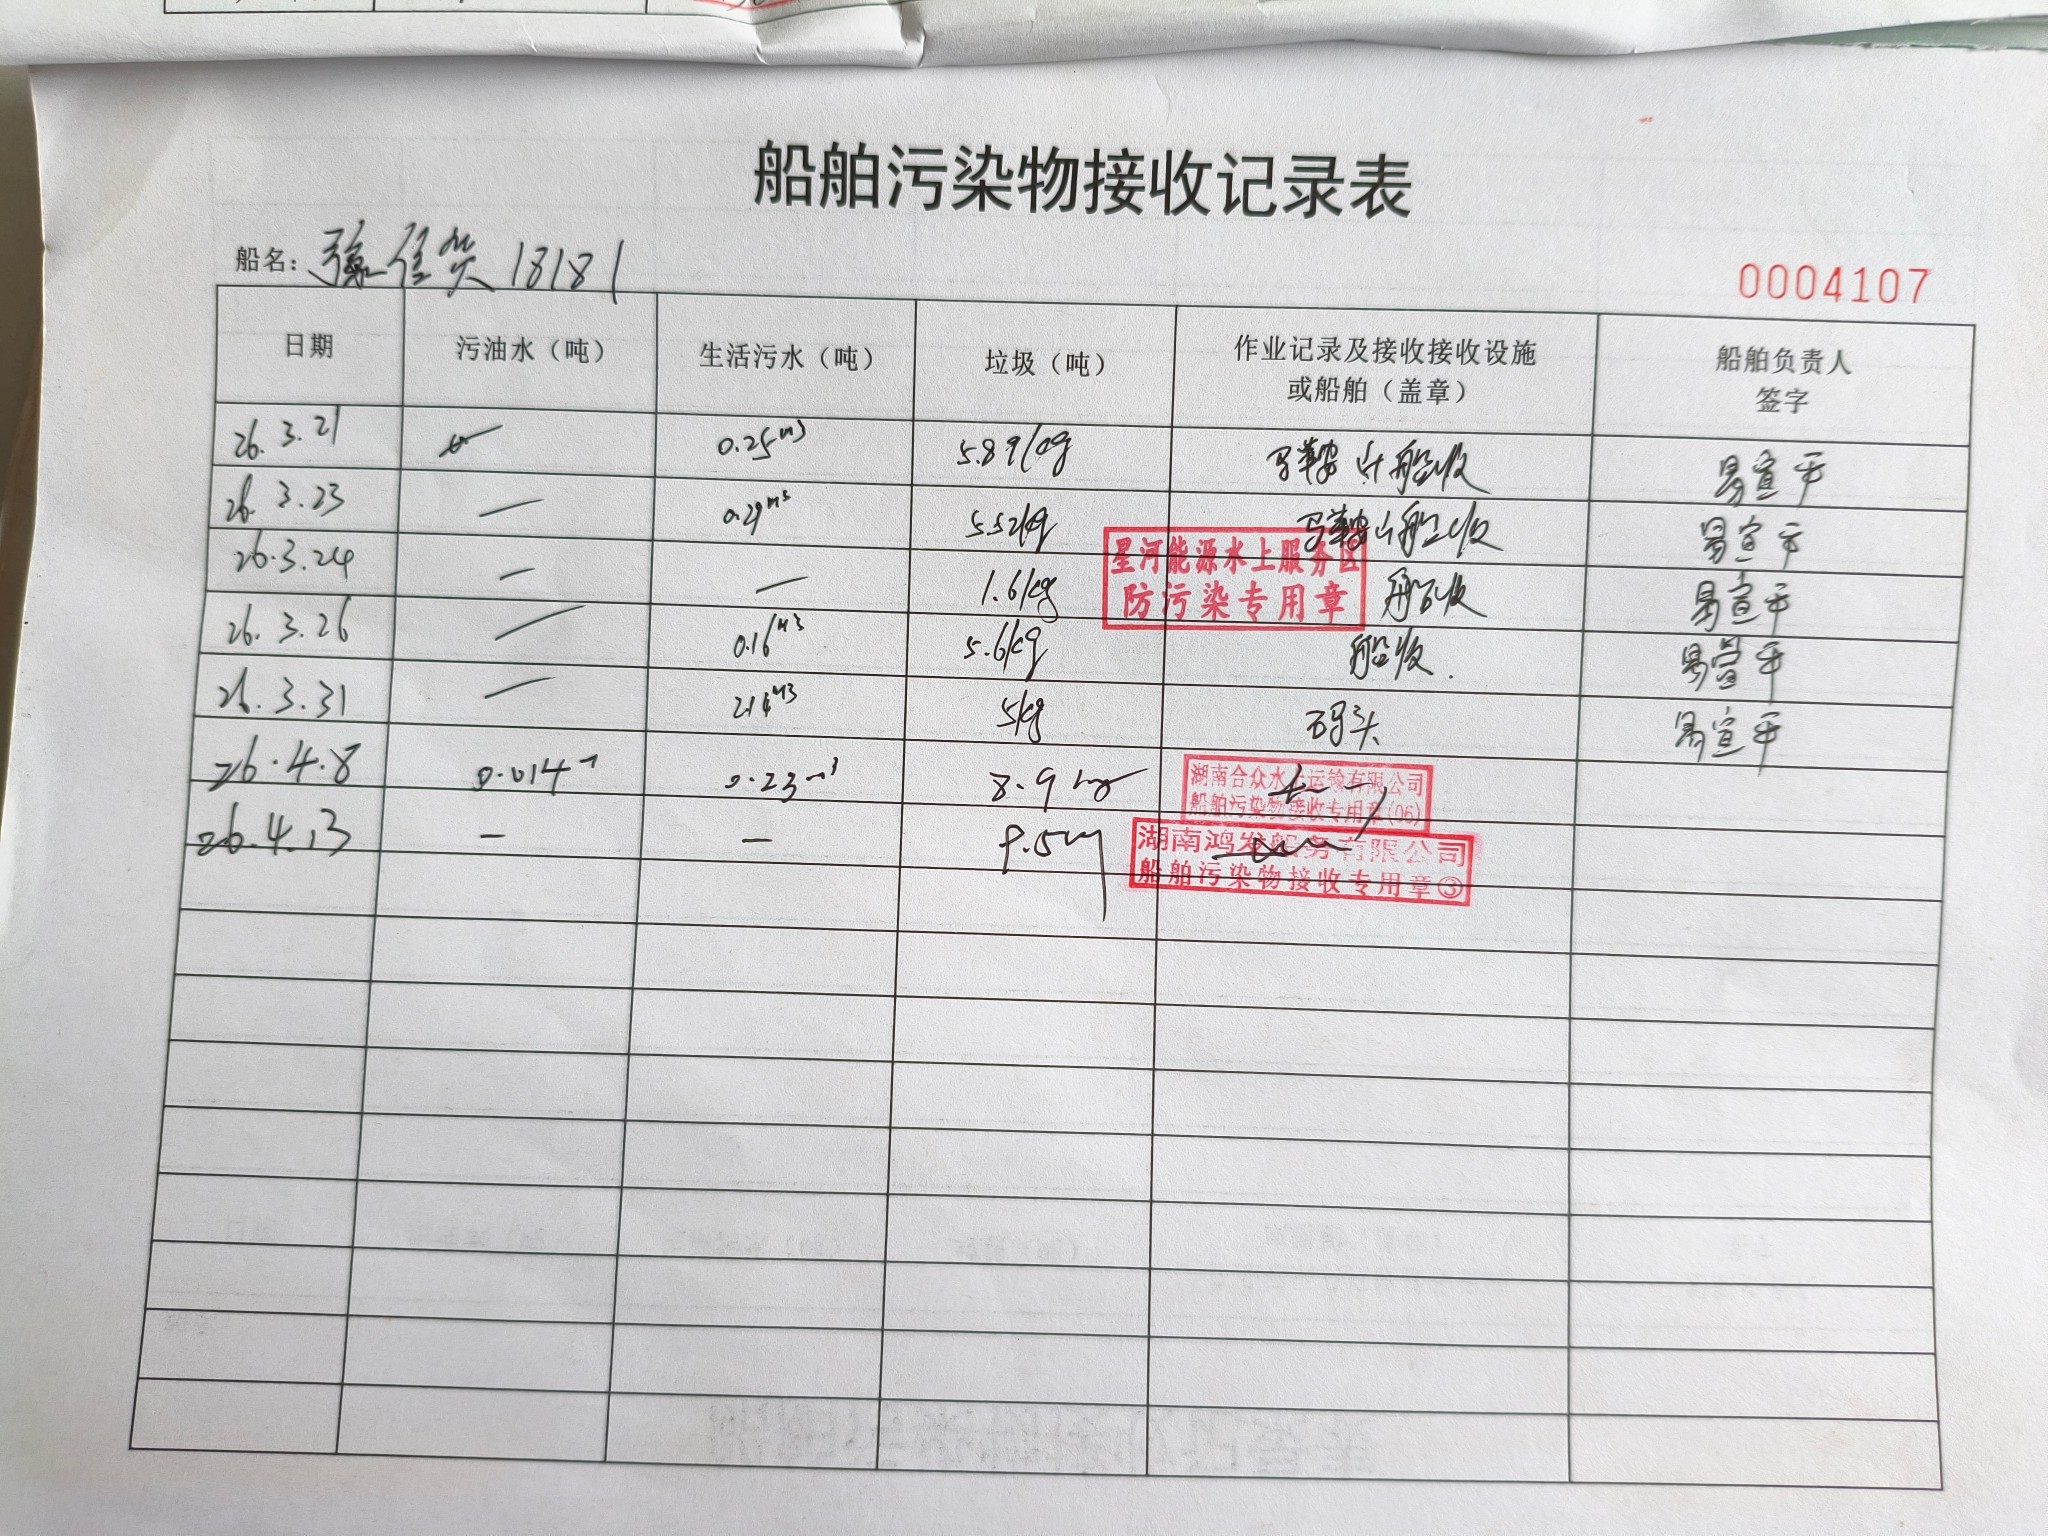 船舶污染物接收记录表
船名: 18181
0004107
日期 污油水（吨） 生活污水（吨） 垃圾（吨） 作业记录及接收接收设施 船舶负责人
或船舶（盖章） 签字
26.3.21 0.25m3 5.89kg 马鞍山船收 易宣平
26.3.23 — 0.29m3 5.52kg 马鞍山船收 易宣平
星河能源水上服务区
防污染专用章
26.3.24 — — 1.6kg 船收 易宣平
26.3.26 — 0.16m3 5.6kg 船收. 易宣平
26.3.31 — m3 5kg 码头 易宣平
26.4.8 0.014 0.23m3 8.9kg
湖南合众水上运输有限公司
船舶污染物接收专用章(06)
26.4.13 — —
湖南鸿发服务有限公司
船舶污染物接收专用章③